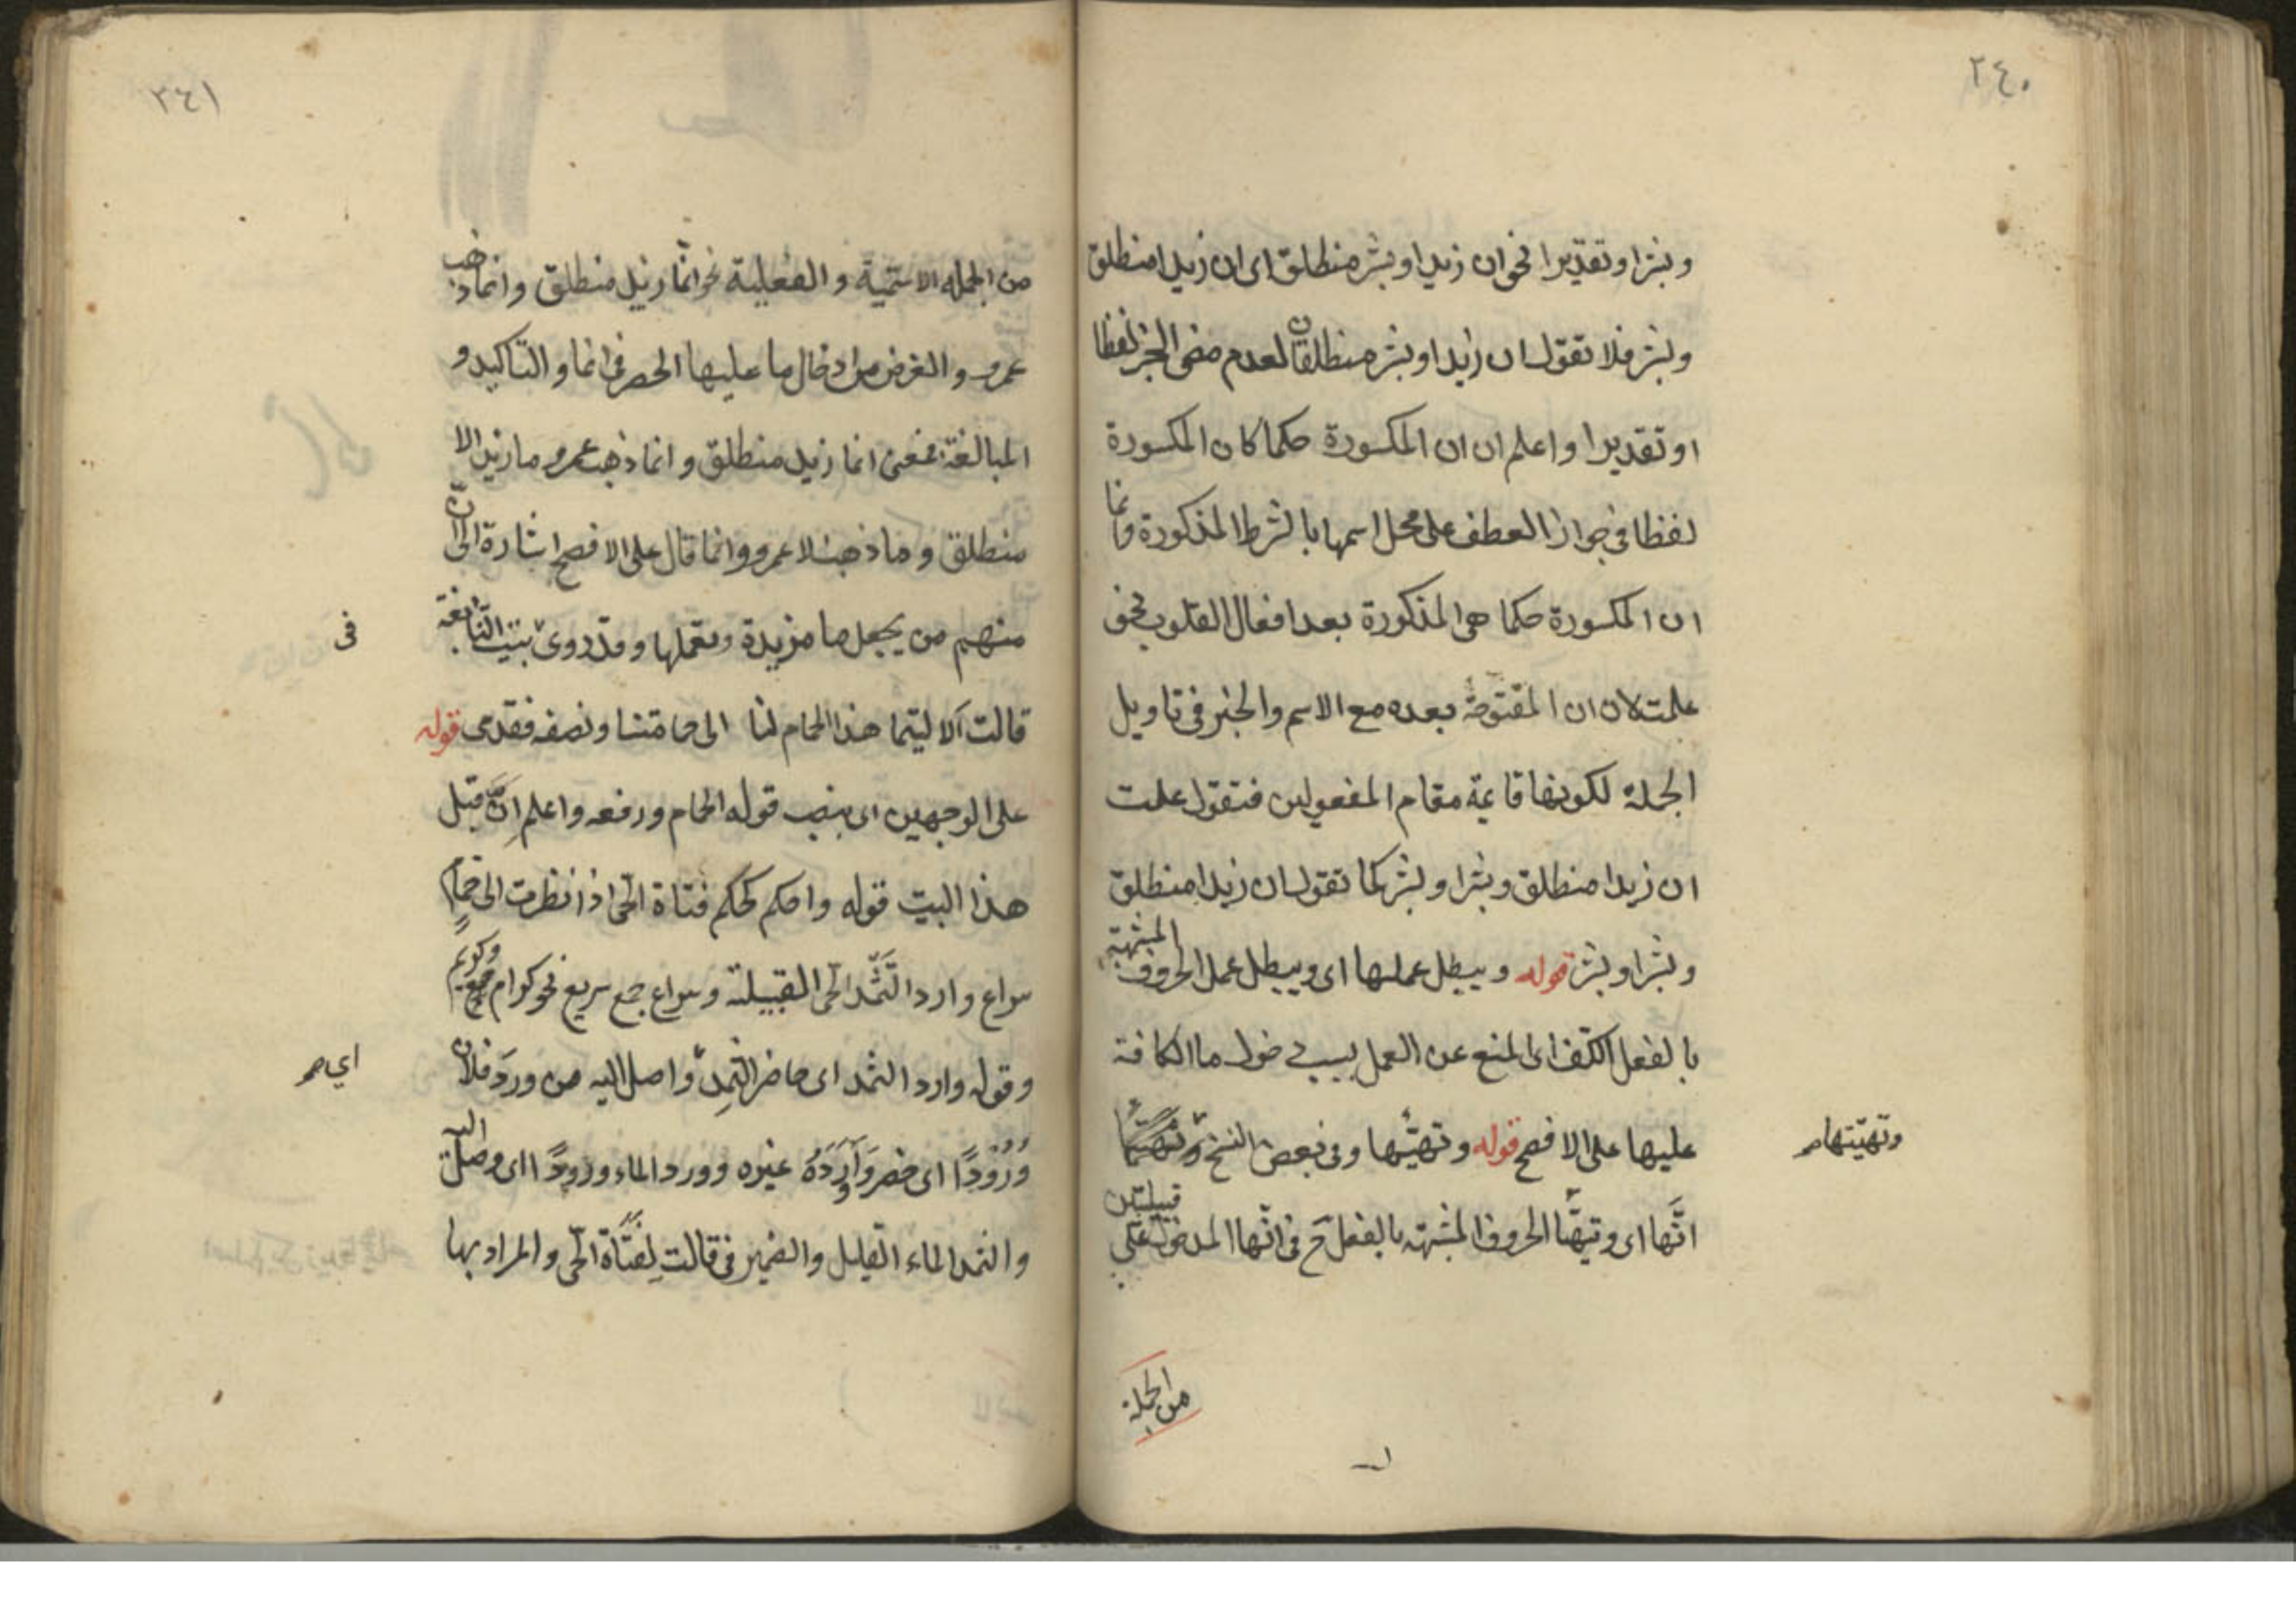 ٢٤٠
وبشرا وتقديرا نحو ان زيدا وبشر منطلق اى ان زيدا منطلق
وبشر فلا تقول ان زيدا وبشر منطلقان لعدم مضى الخبر لفظا
او تقديرا واعلم ان ان المكسورة حكما كان المكسورة
لفظا فى جواز العطف على محل اسمها بالشرط المذكورة وانما
ان المكسورة حكما هى المذكورة بعد افعال القلوب نحو
علمت لان ان المفتوحة بعده مع الاسم والخبر فى تاويل
الجملة لكونها قايمة مقام المفعولين فتقول علمت
ان زيدا منطلق وبشرا وبشر كما تقول ان زيدا منطلق
وبشرا وبشر قوله ويبطل عملها اى ويبطل عمل الحروف المشبهة
بالفعل الكف اى المنع عن العمل بسبب دخول ما الكافة
عليها على الافصح قوله وتهيّئها وفى بعض النسخ
وتهيّئهام
انّها اى وتهيّأ الحروف المشبهه بالفعل ح فى انّها المدخول على قبيلتين
من الجملة
٢٤١
من الجمله الاسميّة والفعلية نحو انّما زيد منطلق وانما ذهب
عمرو والغرض من ادخال ما عليها الحصر فى انما والتاكيد و
المبالغة فمعنى انما زيد منطلق وانما ذهب عمرو ما زيد الا
منطلق وما ذهب الا عمرو وانما قال على الافصح اشارة الى انّ
منهم من يجعل ما مزيدة ويعملها وقد روى بيت النّابغة
فى
قالت الا ليتما هذا الحمام لنا الى حمامتنا ونصفه فقدى قوله
على الوجهين اى بنصب قوله الحمام ورفعه واعلم انّ قبل
هذا البيت قوله واحكم كحكم فتاة الحى اذ نظرت الى حمامٍ
سراع وارد الثَّمَد الحى القبيلة وسراع جمع سريع نحو كرام جمع وكريم
وقوله وارد الثمد اى حاضر الثمِد واصل اليه من ورَد فلان
اي صم
وُرُوْدًا اى حضر وَاَوْرَدَهُ غيره وورد الماء وروداً اى وصل اليه
والثمد الماء القليل والضمير فى قالت لِفتَاة الحّى والمراد بها